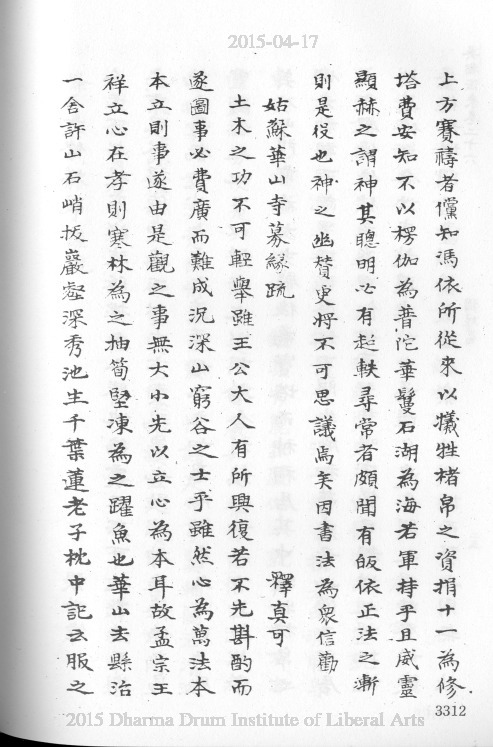 2015-04-17
上方賽禱者儻知馮依所從來以犧牲楮帛之資捐十一為修
塔費安知不以楞伽為普陀華鬘石湖為海若軍持乎且威靈
顯赫之謂神其聰明必有超軼尋常者頗聞有皈依正法之漸
則是役也神之幽贊更將不可思議焉矣因書法為眾信勸
姑蘇華山寺募緣疏 釋真可
土木之功不可輕舉雖王公大人有所興復若不先斟酌而
遂圖事必費廣而難成況深山窮谷之士乎雖然心為萬法本
本立則事遂由是觀之事無大小先以立心為本耳故孟宗王
祥立心在孝則寒林為之抽筍堅凍為之躍魚也華山去縣治
一舍許山石峭拔巖壑深秀池生千葉蓮老子枕中記云服之
3312
2015 Dharma Drum Institute of Liberal Arts